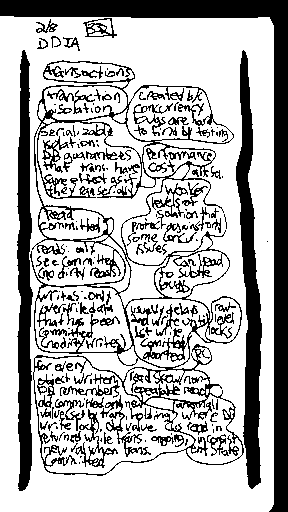 2/8
DDIA
transactions
transaction
isolation
Created b/c
concurrency
bugs are hard
to find by testing
Serializable
isolation:
DB guarantees
that trans. have
same effect as if
they ran serially
Performance
cost
Weaker
levels of
isolation that
protect against only
some concurr.
issues
Can lead
to subtle
bugs
Read
Committed
reads: only
see committed
(no dirty reads)
writes: only
overwrite data
that has been
committed
(no dirty writes)
usually delays
2nd write until
1st write
committed
aborted
row
level
locks
For every
object written,
DB remembers
old committed and new
value (set by trans. holding
write lock). Old value
returned while trans. ongoing,
new val when trans.
committed
Read skew/non-
repeatable read
where DB
read in
inconsist
ent state